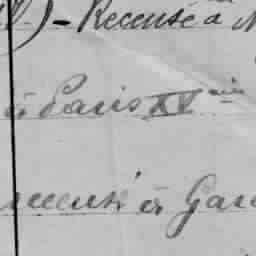 ) - Recensé à
à Paris XVème
recensé à Gar